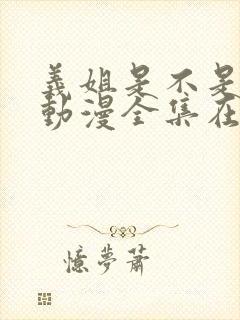 義姐是不是
動漫全集在
憶夢蕭